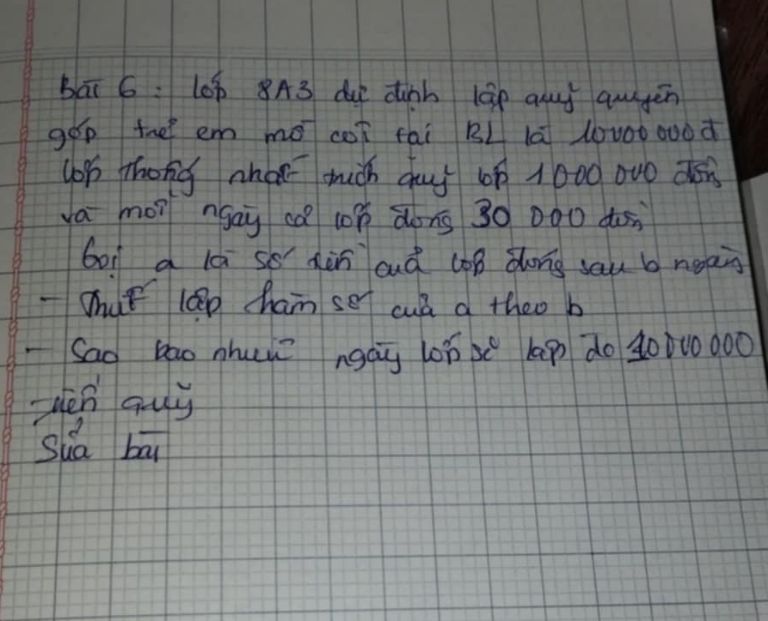 Bài 6: lớp 8A3 dự định lập quỹ quyên
góp trẻ em mồ côi tại BL là 10000000đ
lớp thống nhất trích quỹ lớp 1000000 đồng
và mỗi ngày cả lớp đóng 30000 đồng
Gọi a là số tiền của lớp đóng sau b ngày
- Thiết lập hàm số của a theo b
- Sao bao nhiêu ngày lớp sẽ lập đc 10000000
tiền quỹ
Sửa bài